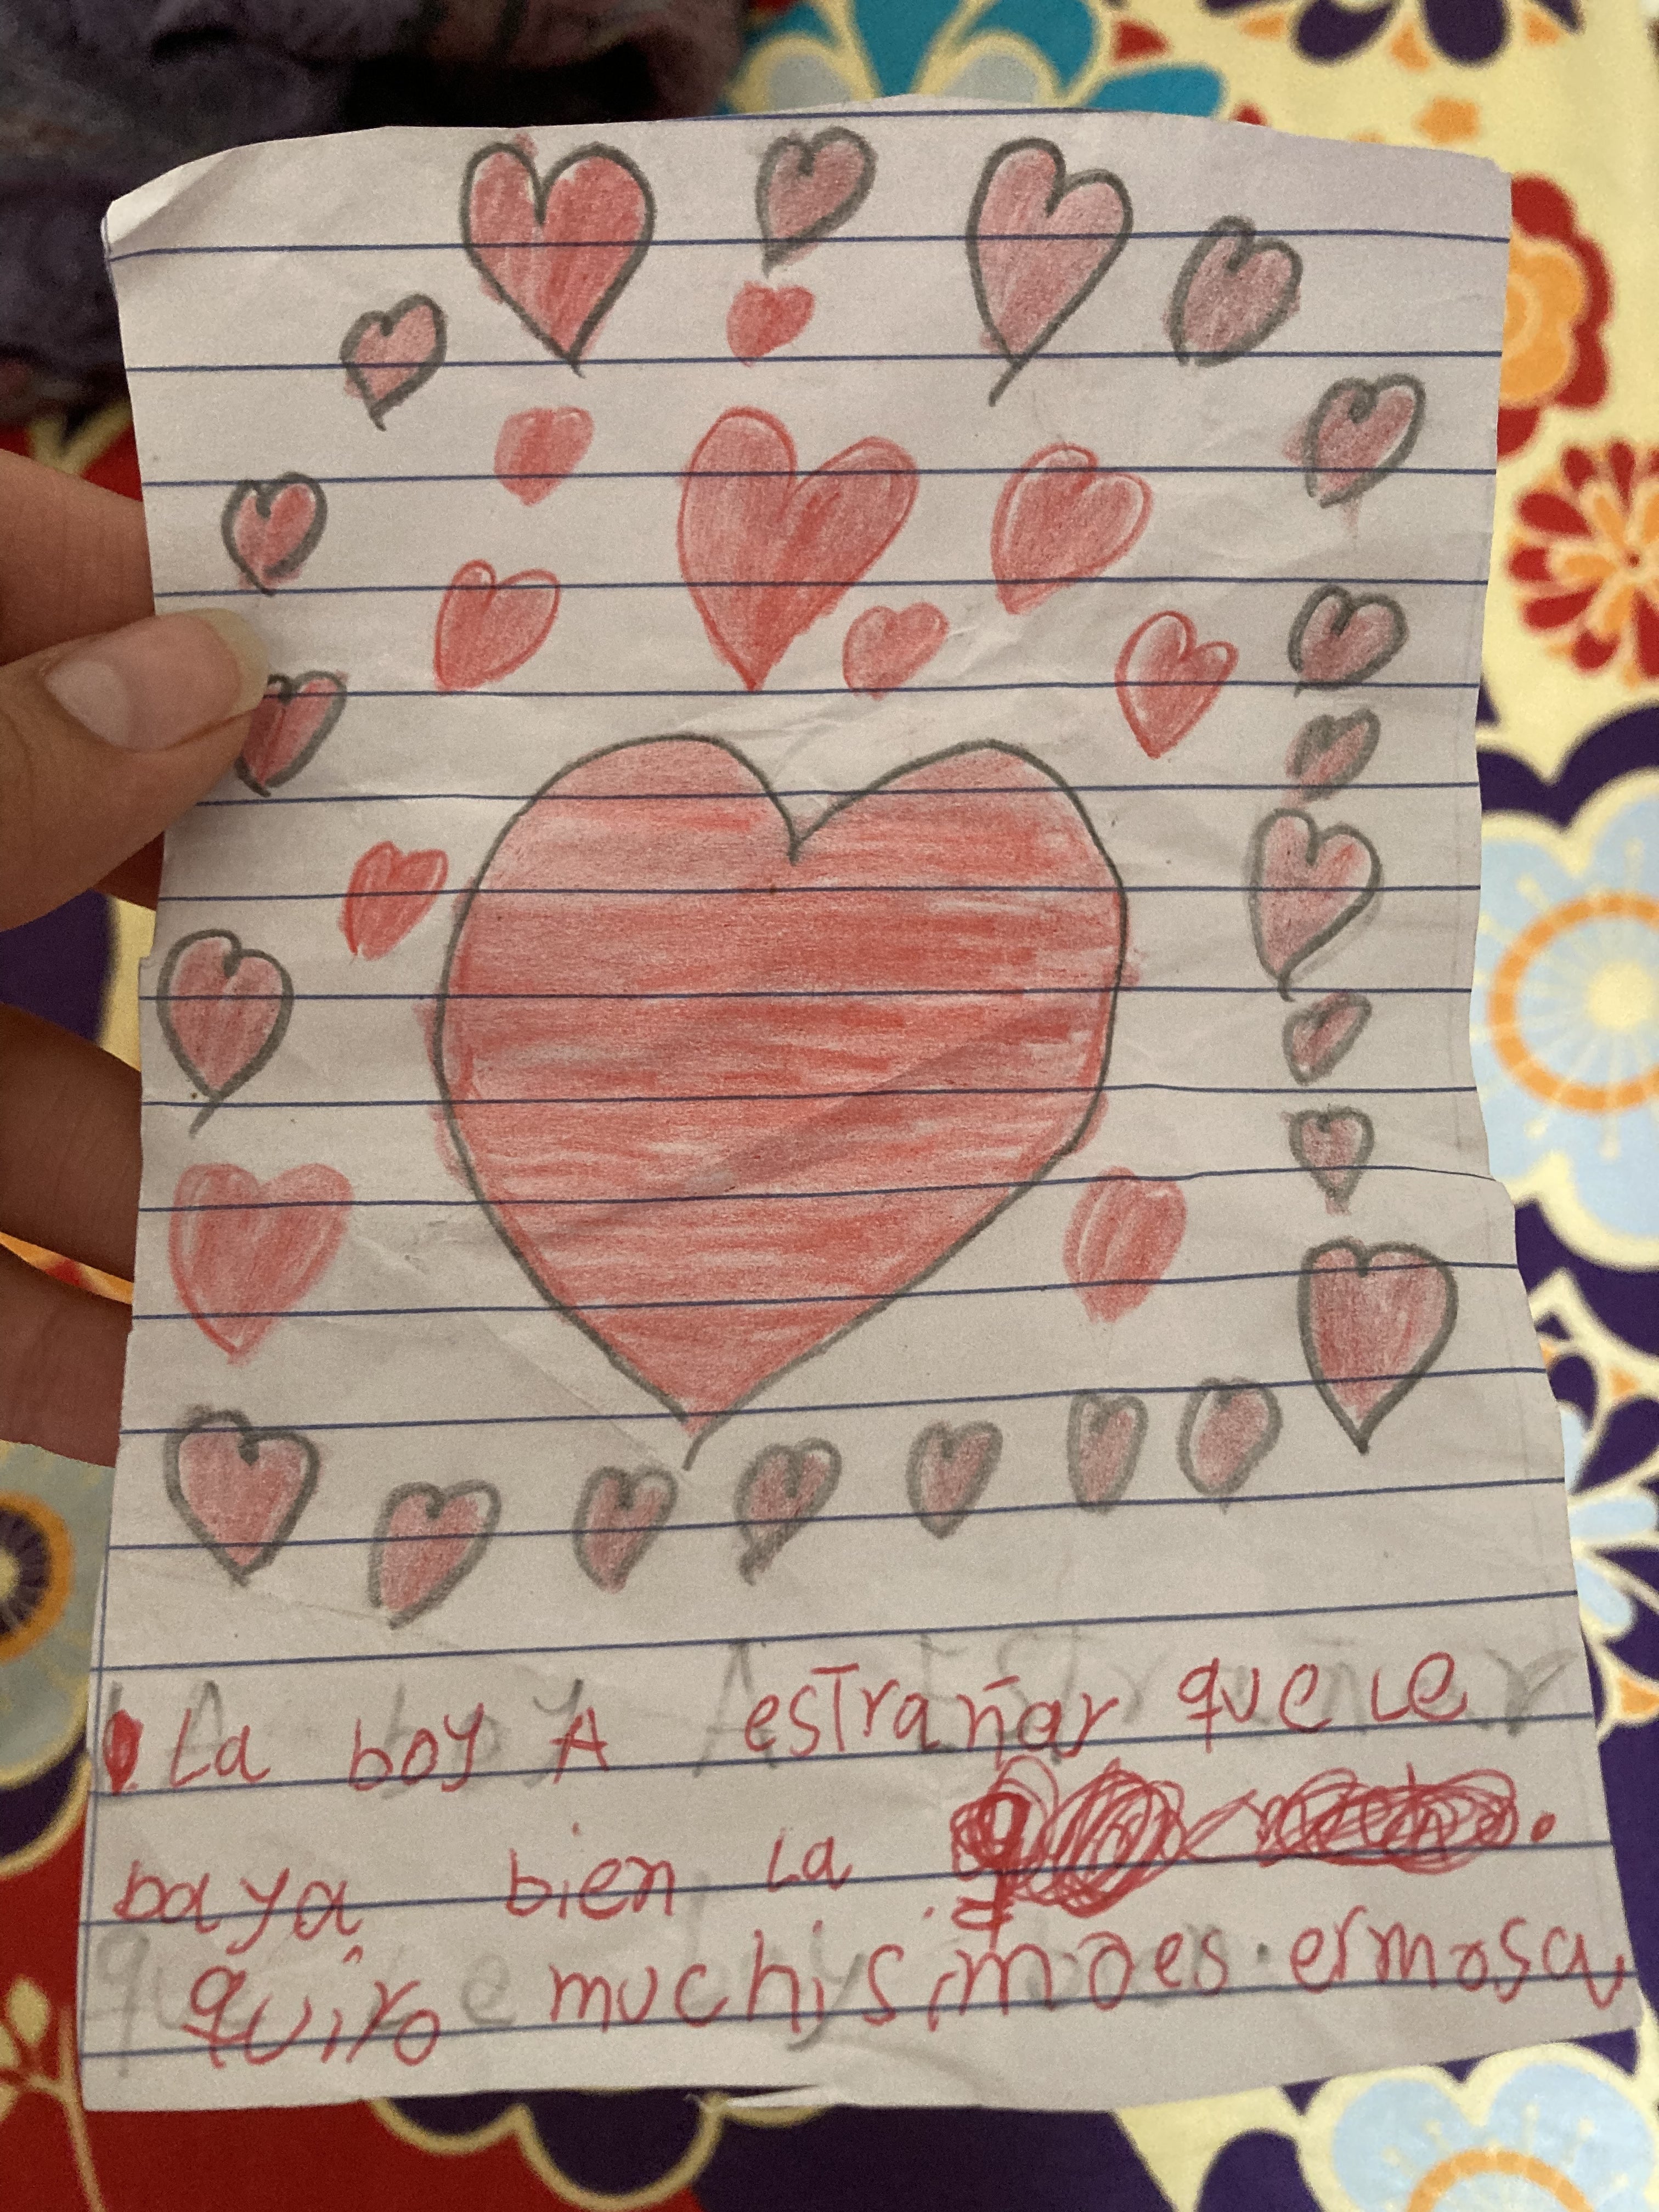 La boy A estrañar que le
baya bien la
quiro muchisimo es ermosa